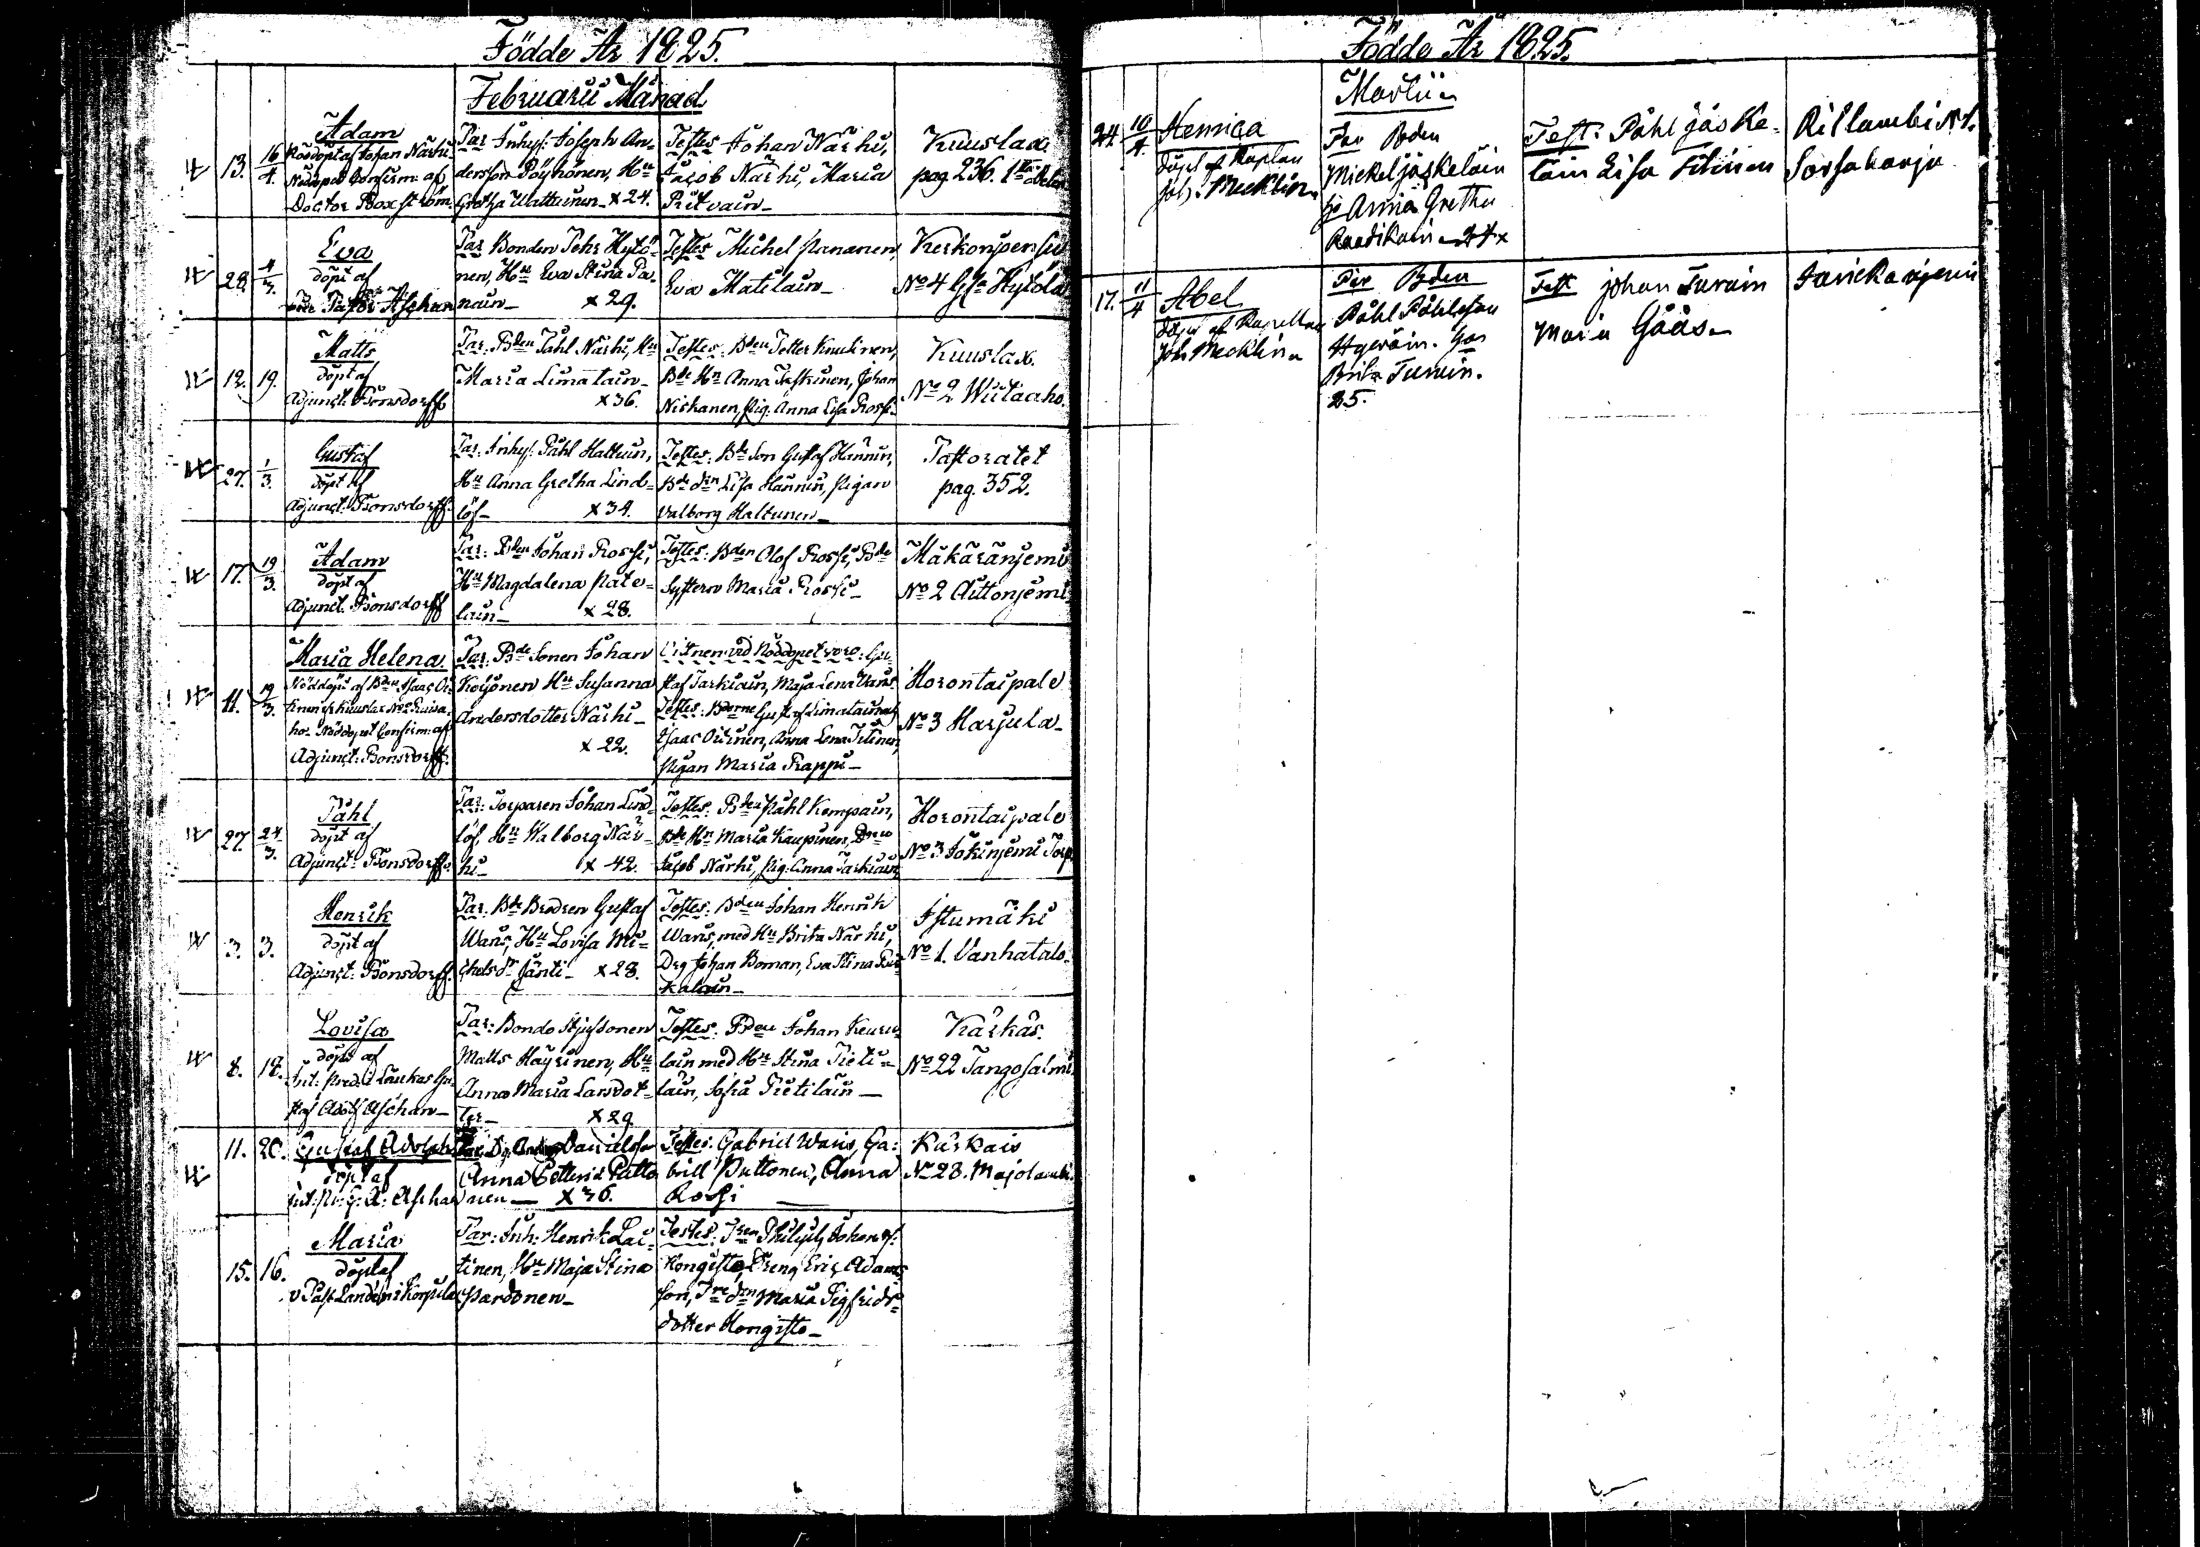 Födde År 1825.
Februarii Månad
13. 16/4. Adam
Nöddöpt af Johan Närhi
Nödopet Confirm: af
Doctor Boxström
Par Inhys: Joseph An-
dersson Pöyhönen, Hu
Gretha Wattuinen x 24.
Testes Johan Närhi,
Jacob Närhi, Maria
Pitvain
Kuuslax
pag 236.
28. 4/3. Eva
döpt af
Aschan
Par Bonden Pehr Hytö-
nen, Hu Eva Stina Pa-
nain x 29.
Testes Michel Pananen,
Eva Matilain
Kerkonjensu
No 4 Hytölä
12. 19. Matts
döpt af
Adjunct: Bonsdorff
Par: Bden Påhl Närhi, Hu
Maria Limatain
x 36.
Testes: Bden Petter Knuutinen,
Bde Hu Anna Paskinen, Johan
Niskanen, Pig: Anna Lisa Rossi
Kuuslax.
No 2 Wiitaaho.
27. 1/3. Gustaf
döpt af
Adjunct: Bonsdorff
Par: Inhys: Påhl Halttuin,
Hu Anna Gretha Lind-
löf x 34.
Testes: Bde Son Gustaf Hännin,
Bde drn Lisa Hännin, Pigan
Valborg Haltunen
Pastoratet
pag. 352.
17. 19/3. Adam
döpt af
Adjunct: Bonsdorff
Par: Bden Johan Rossi,
Hu Magdalena Pate-
lain x 28.
Testes: Bden Olof Rossi, Bde
Systern Maria Rossi
Makaränjemi
No 2 Aittonjemi
11. 19/3. Maria Helena
Nöddöpt af Bden Isaac Oi-
tinen ifr Kuuslax No 2
ho. Nödopet Confirm: af
Adjunct: Bonsdorff.
Par: Bde Sonen Johan
Koljonen Hu Susanna
Andersdotter Närhi
x 22.
Vitnen vid Nöddopet voro: Gu-
staf Tarkiain, Maja Lena Vanis
Testes: Bderne Gustaf Limatain,
Isaac Oitinen, Anna Lena Titinen,
Pigan Maria Rappi
Horontaipale
No 3 Harjula
27. 24/3. Påhl
döpt af
Adjunct: Bonsdorff
Par: Torparen Johan Lind-
löf, Hu Walborg När-
hi x 42.
Testes: Bden Påhl Kempain,
Bde Hu Maria Kaupinen,
Jacob Närhi, Pig: Anna Tarkiain
Horontaipale
No 3 Jokinjemi Torp
3. 3. Henrik
döpt af
Adjunct: Bonsdorff.
Par: Bde Brodren Gustaf
Wanis, Hu Lovisa Mi-
chelsdr Jänti x 28.
Testes: Bden Johan Henrik
Wanis, med Hu Brita Närhi,
Drg Johan Boman, Eva Stina
kalain
Istumäki
No 1. Vanhatalo.
8. 18. Lovisa
döpt af
Int: Pred: i Laukas Gu-
staf Adolf Aschan
Par: Bonde Styfsonen
Matts Häyrinen, Hu
Anna Maria Larsdot-
ter x 29
Testes: Bden Johan Keuru-
lain med Hu Stina Pieti-
läin, Sofia Pietiläin
Kärkäs.
No 22 Tangosalmi
11. 20. Gustaf Adolph
döpt af
Int: Pr: G: A: Aschan
Danielsson
Anna Petters d: Putto
nen x 36.
Testes: Gabriel Wanis, Ga:
briel Puttonen, Anna
Rossi
Kärkais
No 28. Majolambi.
15. 16. Maria
döpt af
v Past Landen i Korpilax
Par: Inh: Henrik Lai-
tinen, Hu Maja Stina
Pardonen
Testes: Philip Johans s:
Hongisto, Dreng Eric Adams
son, Maria Sigfrids-
dotter Hongisto
Födde År 1825.
Martii
24 10/4. Henrica
döpt af Kaplan
Joh: Mecklin
Far Bden
Mickel Jäskeläin
Anna Gretha
24 x
Test: Påhl Jäske-
läin Lisa
Killambi N 1.
Sorsaharju
17. 11/4 Abel
döpt af Kapellan
Joh Mecklin
Far Bden
Påhl Påhlsson
Hyväin. Hu
Brita Turuin.
25.
Test Johan Turuin
Maria Gääs